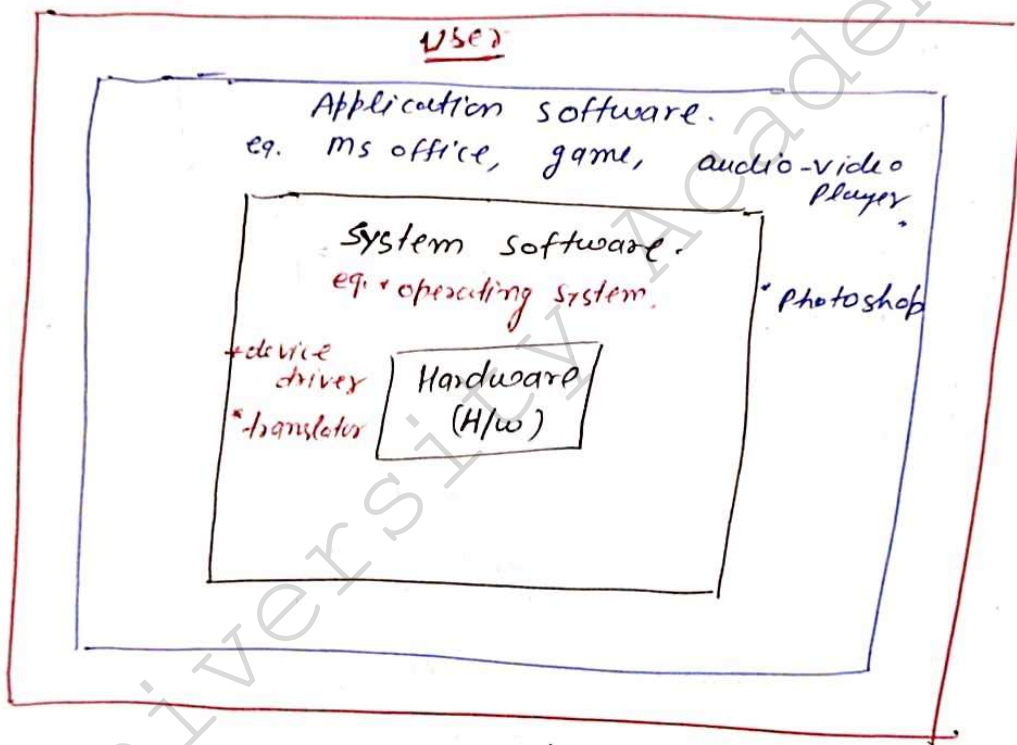 User
Application software.
eg. ms office, game, audio-video
player
System software.
eg. * operating system.
* Photoshop
* device
driver
* translator
Hardware
(H/w)
University Academ